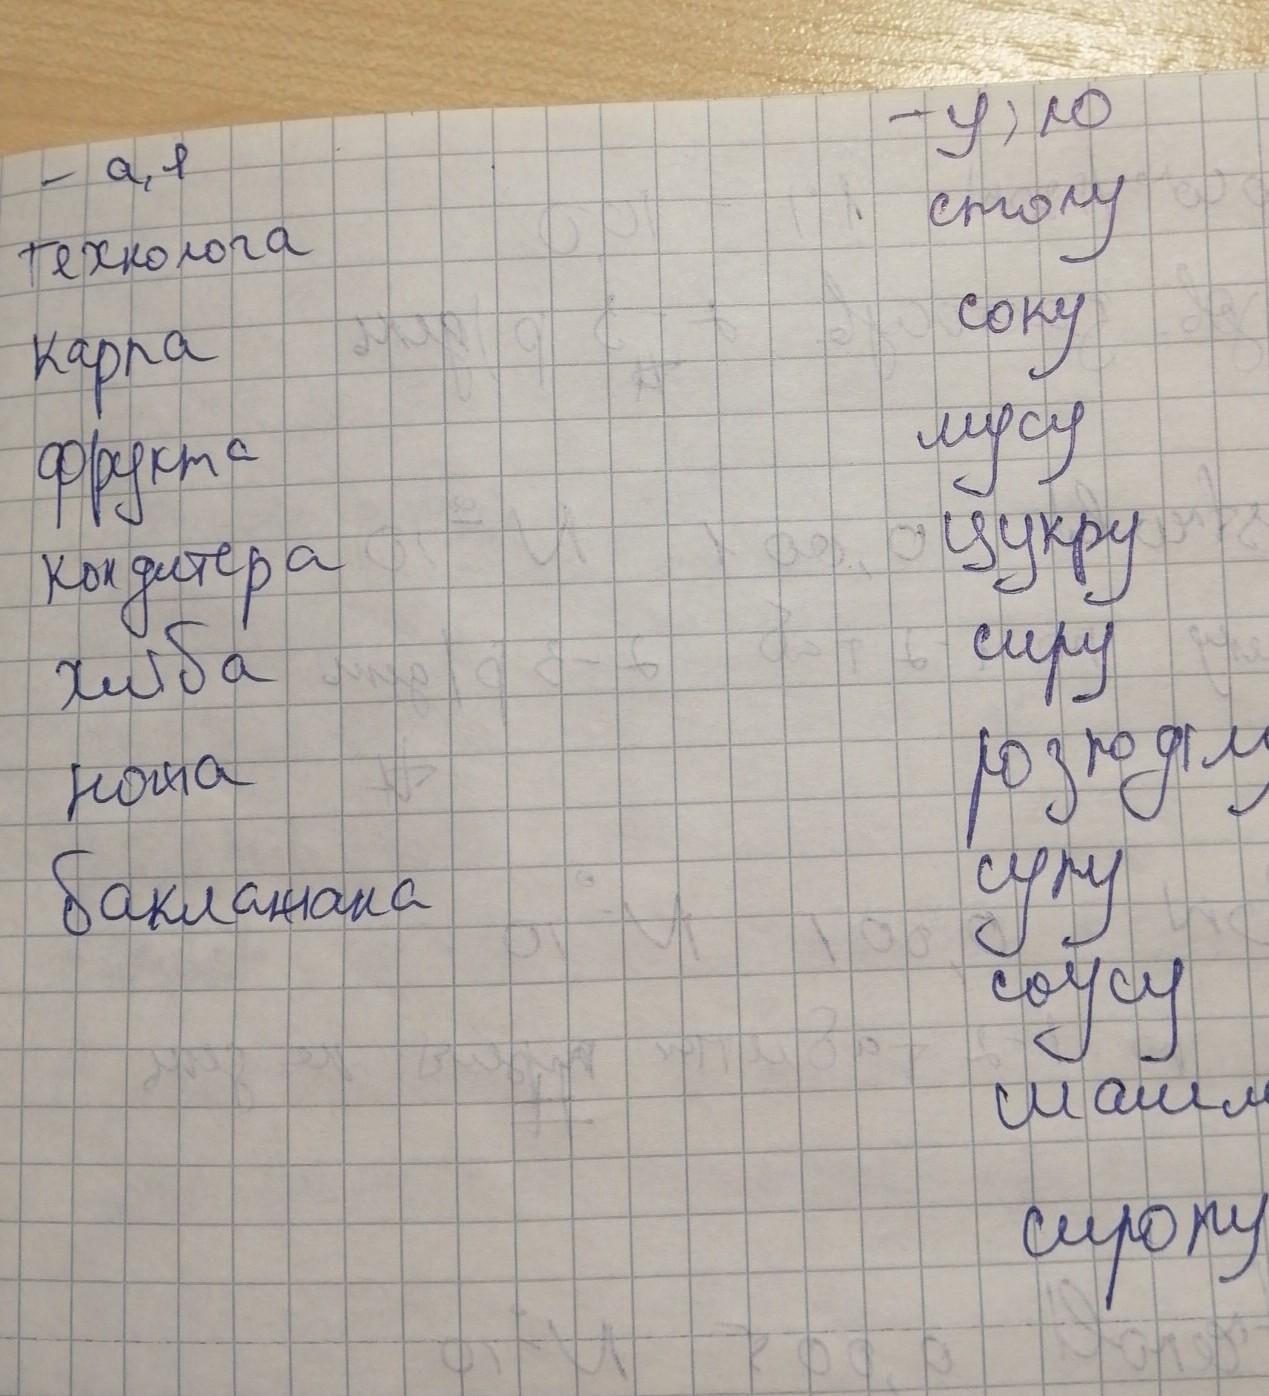 - а, я
технолога
карпа
фрукта
кондитера
хліба
ножа
баклажана
- у, ю
столу
соку
мусу
цукру
сиру
розподілу
супу
соусу
сиропу